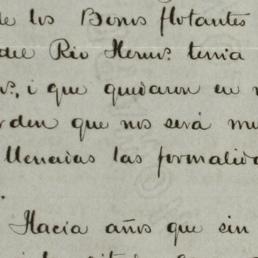 de los Bonos flotantes
del Rio Hernz. tenia
s, i que quedaron en
rden que nos será mu
llenadas las formalida
Hacia años que sin